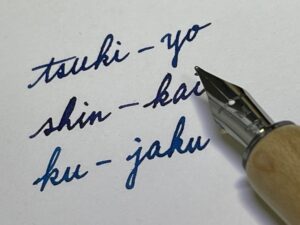 tsuki - yo
shin - kai
ku - jaku